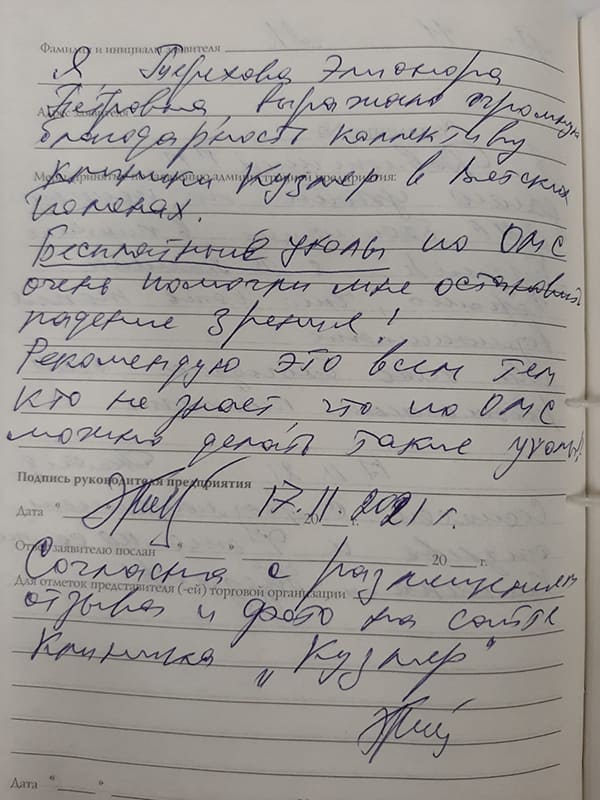 Фамилия и инициалы заявителя
Я Терехова Элионора
Петровна, выражаю огромную
благодарность коллективу
клиники Кузляр в Вятских
полянах.
Бесплатные уколы по ОМС
очень помогли мне остановить
падение зрения!
Рекомендую это всем тем
кто не знает, что по ОМС
можно делать такие уколы!
Подпись руководителя предприятия
Дата " " 17.11.2021 г.
Ответ заявителю послан " " 20 г.
Согласна с размещением
Для отметок представителя (-ей) торговой организации
отзыва и фото на сайте
Клиника „Кузляр"
Дата " "